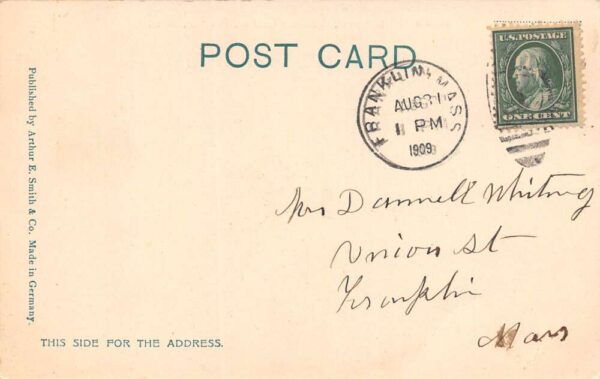 POST CARD
U.S. POSTAGE
ONE CENT
FRANKLIN, MASS
AUG 31
1 PM
1909
Mrs Dannell Whitney
Union St
Franklin
Mass
Published by Arthur E. Smith & Co. Made in Germany.
THIS SIDE FOR THE ADDRESS.